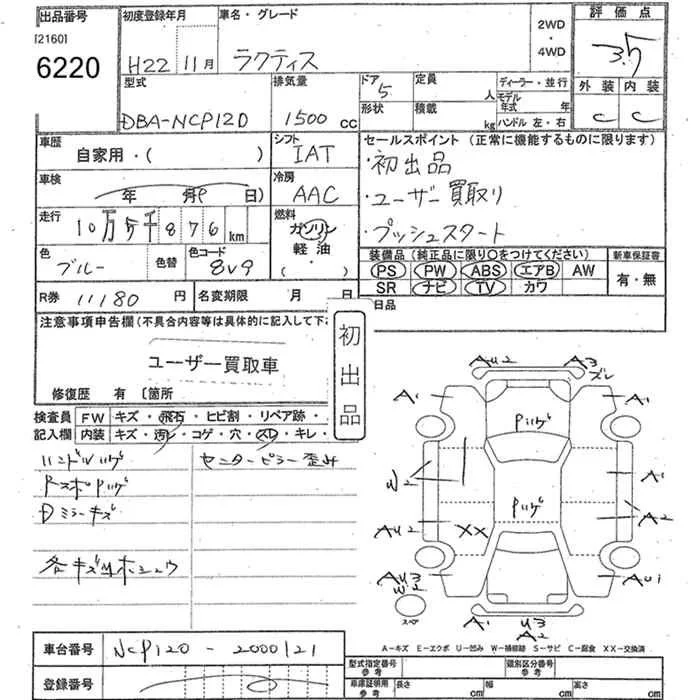 出品番号
[2160]
6220
初度登録年月
H22 11月
車名・グレード
ラクティス
2WD
・
4WD
評価点
3.5
外装 内装
C C
型式
DBA-NCP120
排気量
1500 cc
ドア
5
形状
定員
人
積載
kg
ディーラー・並行
モデル年式 年
ハンドル 左・右
車歴
自家用・( )
シフト
IAT
冷房
AAC
セールスポイント (正常に機能するものに限ります)
・初出品
・ユーザー買取り
・プッシュスタート
車検
年 月 日)
走行
10万5千876 km
燃料
ガソリン
軽油
( )
色
ブルー
色替
色コード
8V9
装備品 (純正品に限り〇をつけてください)
PS PW ABS エアB AW
SR ナビ TV カワ
新車保証書
有・無
R券 11180 円
名変期限 月 日
日品
注意事項申告欄(不具合内容等は具体的に記入して下
ユーザー買取車
初出品
修復歴 有 〔箇所
検査員
記入欄
FW キズ・飛石・ヒビ割・リペア跡・
内装 キズ・汚レ・コゲ・穴・スレ・キレ・
ハンドルハゲ
センターピラー歪み
RスポPハゲ
Dミラーキズ
各キズ凹ホシュウ
AU2
A3
ズレ
A1
A1
Pハゲ
W2
A1
A2
Pハゲ
AU2
XX
AU3
W2
AU1
スペア
A1
U3
A2
A-キズ E-エクボ U-凹み W-補修跡 S-サビ C-腐食 XX-交換済
車台番号 NCP120 - 2000121
登録番号
型式指定番号
参考
類別区分番号
参考
車庫証明用
参考
長さ cm
幅 cm
高さ cm